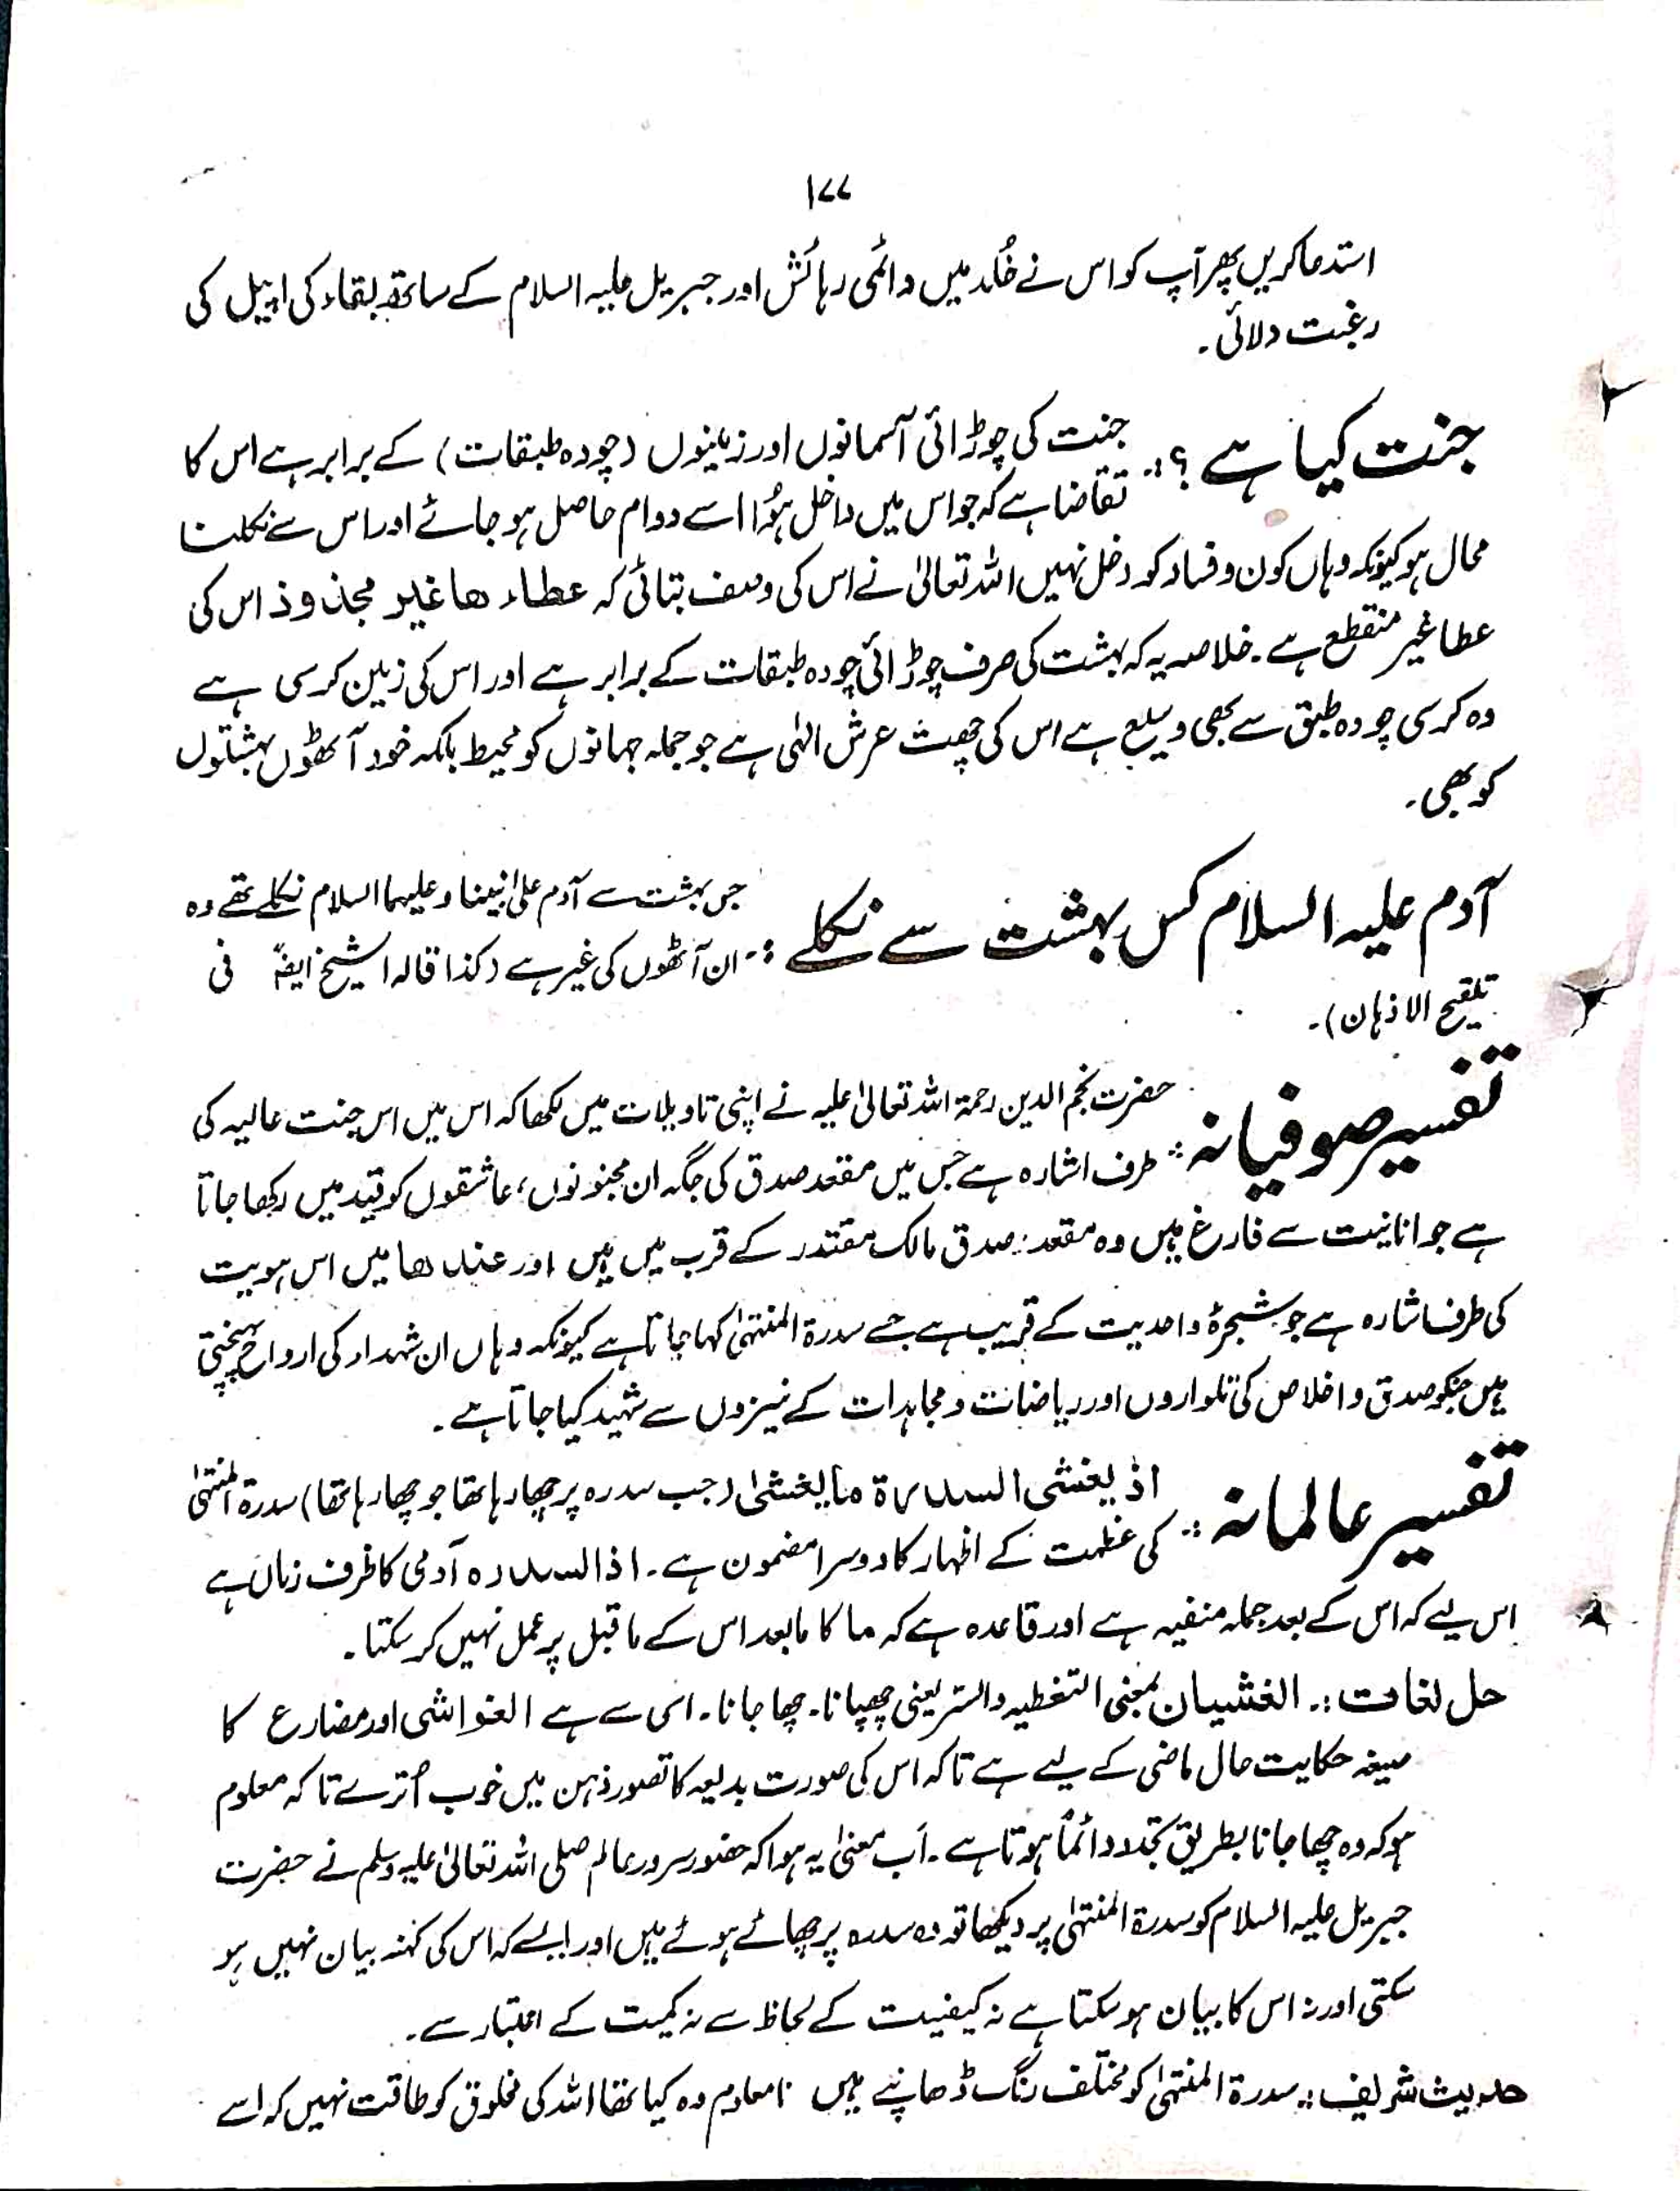 ۱۷۷
استدعا کریں پھر آپ کو اس نے خُلد میں دائمی رہائش اور جبریل علیہ السلام کے ساتھ بقاء کی اپیل کی
رغبت دلائی۔
جنت کیا ہے ؟:۔ جنت کی چوڑائی آسمانوں اور زمینوں (چودہ طبقات) کے برابر ہے اس کا
تقاضا ہے کہ جو اس میں داخل ہُوا اسے دوام حاصل ہو جائے اور اس سے نکلنا
محال ہو کیونکہ وہاں کون و فساد کو دخل نہیں اللہ تعالیٰ نے اس کی وصف بتائی کہ عطاء ھا غیر مجذوذ اس کی
عطا غیر منقطع ہے۔ خلاصہ یہ کہ بہشت کی صرف چوڑائی چودہ طبقات کے برابر ہے اور اس کی زمین کرسی ہے
وہ کرسی چودہ طبق سے بھی وسیع ہے اس کی چھت عرش الہٰی ہے جو جملہ جہانوں کو محیط بلکہ خود آٹھوں بہشتوں
کو بھی۔
آدم علیہ السلام کس بہشت سے نکلے :۔ جس بہشت سے آدم علیٰ نبینا و علیہما السلام نکلے تھے وہ
ان آٹھوں کی غیر ہے (کذا قالہ الشیخ ایضاً فی
تلقیح الاذہان)۔
تفسیر صوفیانہ :۔ حضرت نجم الدین رحمۃ اللہ تعالیٰ علیہ نے اپنی تاویلات میں لکھا کہ اس میں اس جنت عالیہ کی
طرف اشارہ ہے جس میں مقعد صدق کی جگہ ان مجنونوں، عاشقوں کو قید میں رکھا جاتا
ہے جو انانیت سے فارغ ہیں وہ مقعد صدق مالک مقتدر کے قرب میں ہیں اور عندھا میں اس ہویت
کی طرف اشارہ ہے جو شجرۂ واحدیت کے قریب ہے جسے سدرۃ المنتہیٰ کہا جاتا ہے کیونکہ وہاں ان شہداء کی ارواح پہنچتی
ہیں جنکو صدق و اخلاص کی تلواروں اور ریاضات و مجاہدات کے نیزوں سے شہید کیا جاتا ہے۔
تفسیر عالمانہ :۔ اذ یغشی السدرۃ ما یغشیٰ (جب سدرہ پر چھا رہا تھا جو چھا رہا تھا) سدرۃ المنتہیٰ
کی عظمت کے اظہار کا دوسرا مضمون ہے۔ اذ السدرہ آدمی کا ظرف زماں ہے
اس لیے کہ اس کے بعد جملہ منفیہ ہے اور قاعدہ ہے کہ ما کا مابعد اس کے ماقبل پر عمل نہیں کر سکتا۔
حل لغات :۔ الغشیان بمعنی التغطیہ والستر یعنی چھپانا۔ چھا جانا۔ اسی سے ہے الغواشی اور مضارع کا
صیغہ حکایت حال ماضی کے لیے ہے تاکہ اس کی صورت بدیعہ کا تصور ذہن میں خوب اُترے تاکہ معلوم
ہو کہ وہ چھا جانا بطریق تجدد دائماً ہوتا ہے۔ اَب معنیٰ یہ ہوا کہ حضور سرور عالم صلی اللہ تعالیٰ علیہ وسلم نے حضرت
جبریل علیہ السلام کو سدرۃ المنتہیٰ پر دیکھا تو وہ سدرہ پر چھائے ہوئے ہیں اور ایسے کہ اس کی کنہ بیان نہیں ہو
سکتی اور نہ اس کا بیان ہو سکتا ہے نہ کیفیت کے لحاظ سے نہ کمیت کے اعتبار سے۔
حدیث شریف :۔ سدرۃ المنتہیٰ کو مختلف رنگ ڈھانپے ہیں نامعلوم وہ کیا تھا اللہ کی مخلوق کو طاقت نہیں کہ اسے